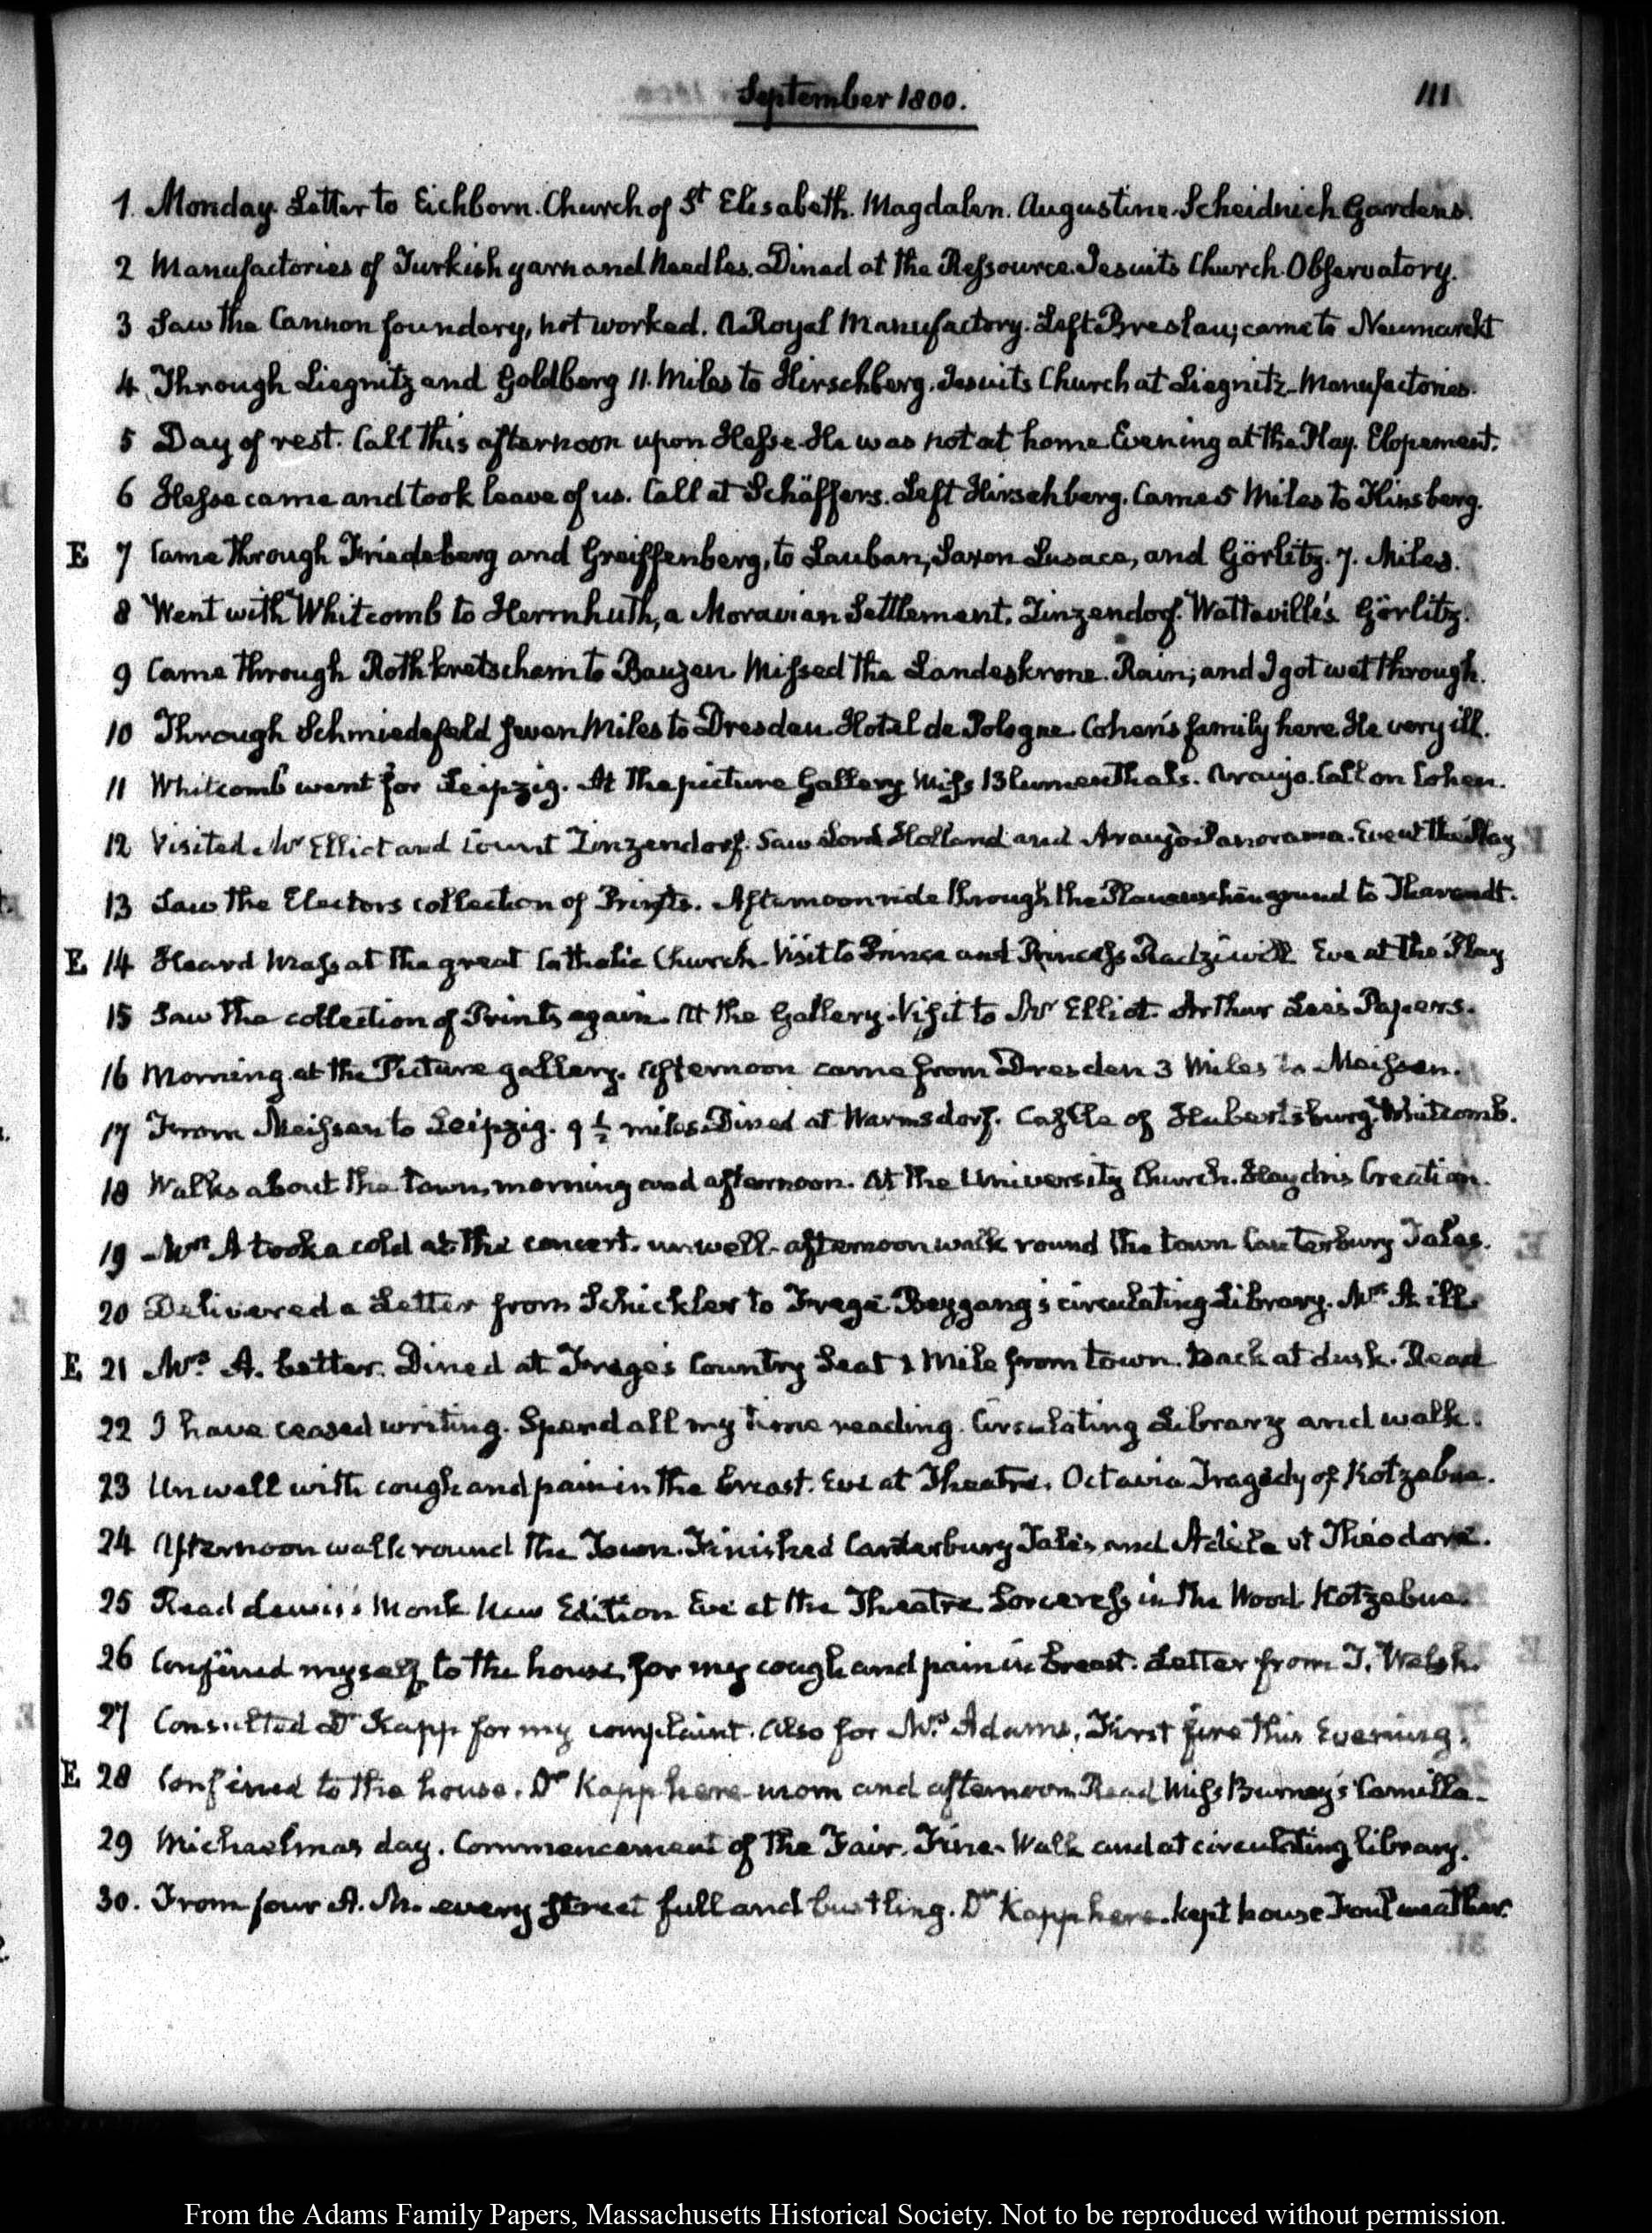 September 1800.
111
1. Monday. Letter to Eichborn. Church of St Elisabeth. Magdalen. Augustine. Scheidnich Gardens.
2 Manufactories of Turkish yarn and Needles. Dined at the Ressource. Jesuits Church. Observatory.
3 Saw the Cannon foundery, not worked. A Royal Manufactory. Left Breslau; came to Neumarckt
4 Through Liegnitz and Goldberg 11. Miles to Hirschberg. Jesuits Church at Liegnitz. Manufactories.
5 Day of rest. Call this afternoon upon Hesse. He was not at home. Evening at the Play. Elopement.
6 Hesse came and took leave of us. Call at Schäffers. Left Hirschberg. Came 5 Miles to Flinsberg.
E 7 Came through Friedeberg and Greiffenberg, to Lauban; Saxon Lusace, and Görlitz. 7. Miles.
8 Went with Whitcomb to Herrnhuth, a Moravian Settlement. Zinzendorf. Watteville's. Görlitz.
9 Came through Rothkretscham to Bauzen. Missed the Landeskrone. Rain; and I got wet through.
10 Through Schmiedefeld seven Miles to Dresden. Hotel de Pologne. Cohen's family here. He very ill.
11 Whitcomb went for Leipzig. At the picture Gallery. Miss Blumenthals. Araujo. Call on Cohen.
12 Visited Mr Elliot and Count Zinzendorf. Saw Lord Holland and Araujo. Panorama. Eve at the Play
13 Saw the Electors collection of Prints. Afternoon ride through the Plauenschen grund to Tharandt.
E 14 Heard Mass at the great Catholic Church. Visit to Prince and Princess Radziwill Eve at the Play
15 Saw the collection of Prints again. At the Gallery. Visit to Mr Elliot. Arthur Lee's Papers.
16 Morning at the Picture gallery. Afternoon came from Dresden 3 Miles to Meissen.
17 From Meissen to Leipzig. 9 1/2 miles. Dined at Warmsdorf. Castle of Hubertsburg. Whitcomb.
18 Walks about the town, morning and afternoon. At the University Church. Haydn's Creation.
19 Mrs A took a cold at the concert. unwell. afternoon walk round the town Canterbury Tales.
20 Delivered a Letter from Schickler to Frege. Beygang's circulating Library. Mrs A. ill.
E 21 Mrs A. better. Dined at Frege's Country Seat 1 Mile from town. Back at dusk. Read
22 I have ceased writing. Spend all my time reading. Circulating Library and walk.
23 Unwell with cough and pain in the breast. Eve at Theatre. Octavia Tragedy of Kotzebue.
24 Afternoon walk round the Town. Finished Canterbury Tales, and Adèle et Théodore.
25 Read Lewis's Monk New Edition Eve at the Theatre Sorceress in the Wood. Kotzebue.
26 Confined myself to the house, for my cough and pain in breast. Letter from T. Welsh.
27 Consulted Dr Kapp for my complaint. Also for Mrs Adams. First fire this Evening.
E 28 Confined to the house. Dr Kapp here morn and afternoon. Read Miss Burney's Camilla.
29 Michaelmas day. Commencement of the Fair. Fine. Walk and at circulating library.
30. From four A.M. every street full and bustling. Dr Kapp here. kept house Foul weather.
From the Adams Family Papers, Massachusetts Historical Society. Not to be reproduced without permission.